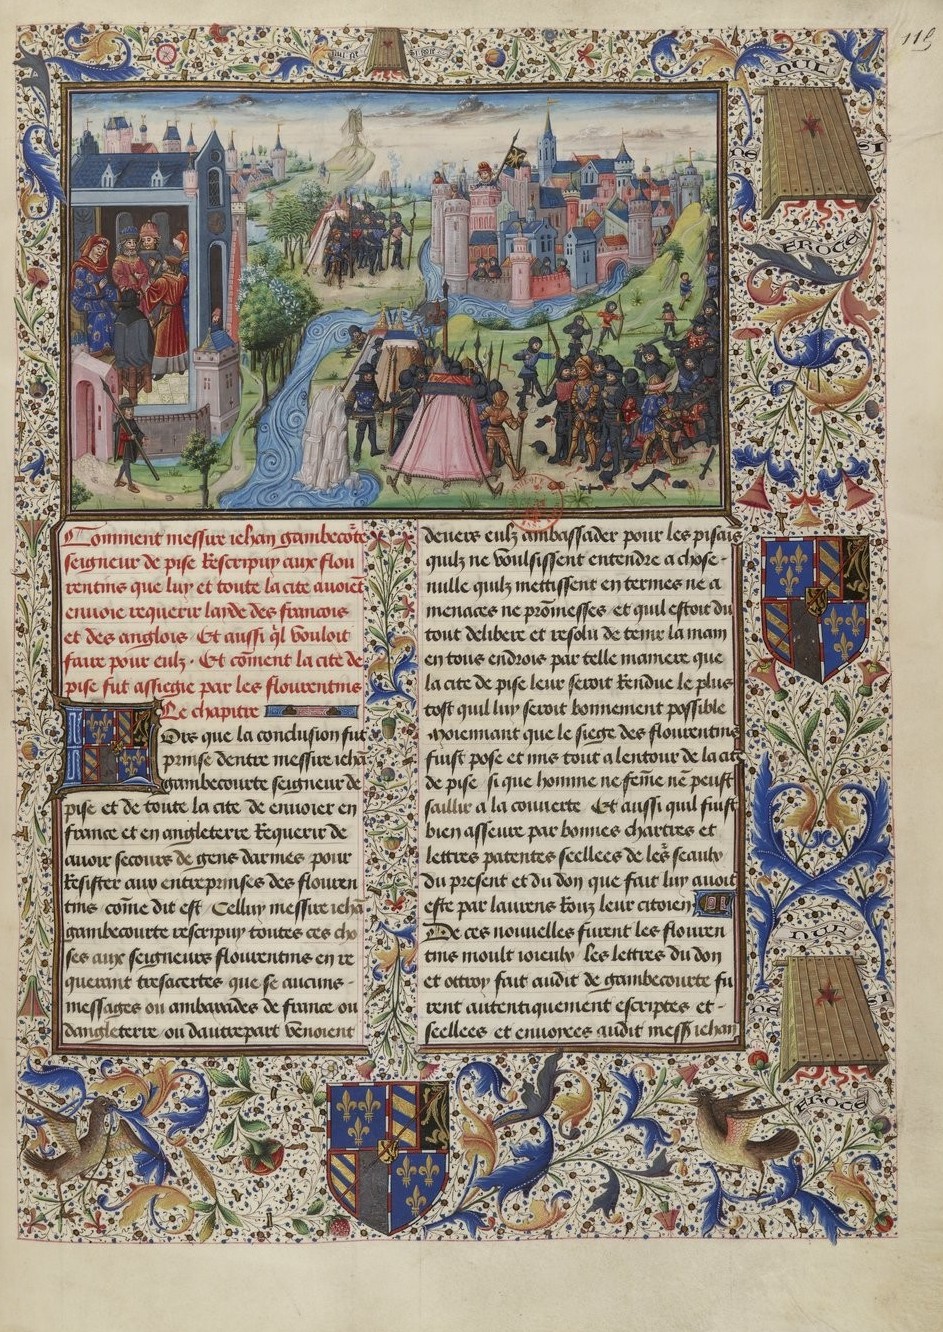 119
nul ne si frote
nul
ne
si
frote
Comment messire iehan gambecorte
seigneur de pise Rescripuy aux flou
rentins que luy et toute la cite auoient
enuoie requerir laide des francois
et des anglois. Et aussi ql vouloit
faire pour eulz. Et coment la cite de
pise fut assiegie par les flourentins
Le chapitre
Ors que la conclusion fut
prinse dentre messire iehā
gambecourte seigneur de
pise et de toute la cite de enuoier en
france et en angleterre Requerir de
auoir secours de gens darmes pour
Resister aux entreprinses des flouren
tins cōme dit est / Celluy messire iehā
gambecourte rescripuy toutes ces cho
ses aux seigneurs flourentins en re
querant trefacertes que se aucuns
messages ou ambaxades de france ou
dangleterre / ou dautrepart venoient
deuers eulz ambassader pour les pisais
quilz ne voulsissent entendre a chose
nulle quilz mettissent en termes ne a
menaces ne prōmesses et quil estoit du
tout delibere et resolu de tenir la main
en tous endrois par telle maniere que
la cite de pise leur seroit Rendue le plus
tost quil luy seroit bonnement possible
Moiennant que le siege des flourentins
fuist pose et mis tout a lentour de la cite
de pise / si que homme ne fēme nē peust
saillir a la couuerte Et aussi quil fuist
bien asseure par bonnes chartres et
lettres patentes seellees de leᵗs seaulx
du present et du don que fait luy auoit
este par laurens Rouz leur citoien
De ces nouuelles furent les flouren
tins moult ioieulx / les lettres du don
et ottroy fait audit de gambecourte fu
rent autentiquement escriptes et
seellees et enuoiees audit mess iehan
nul
ne
si
frote